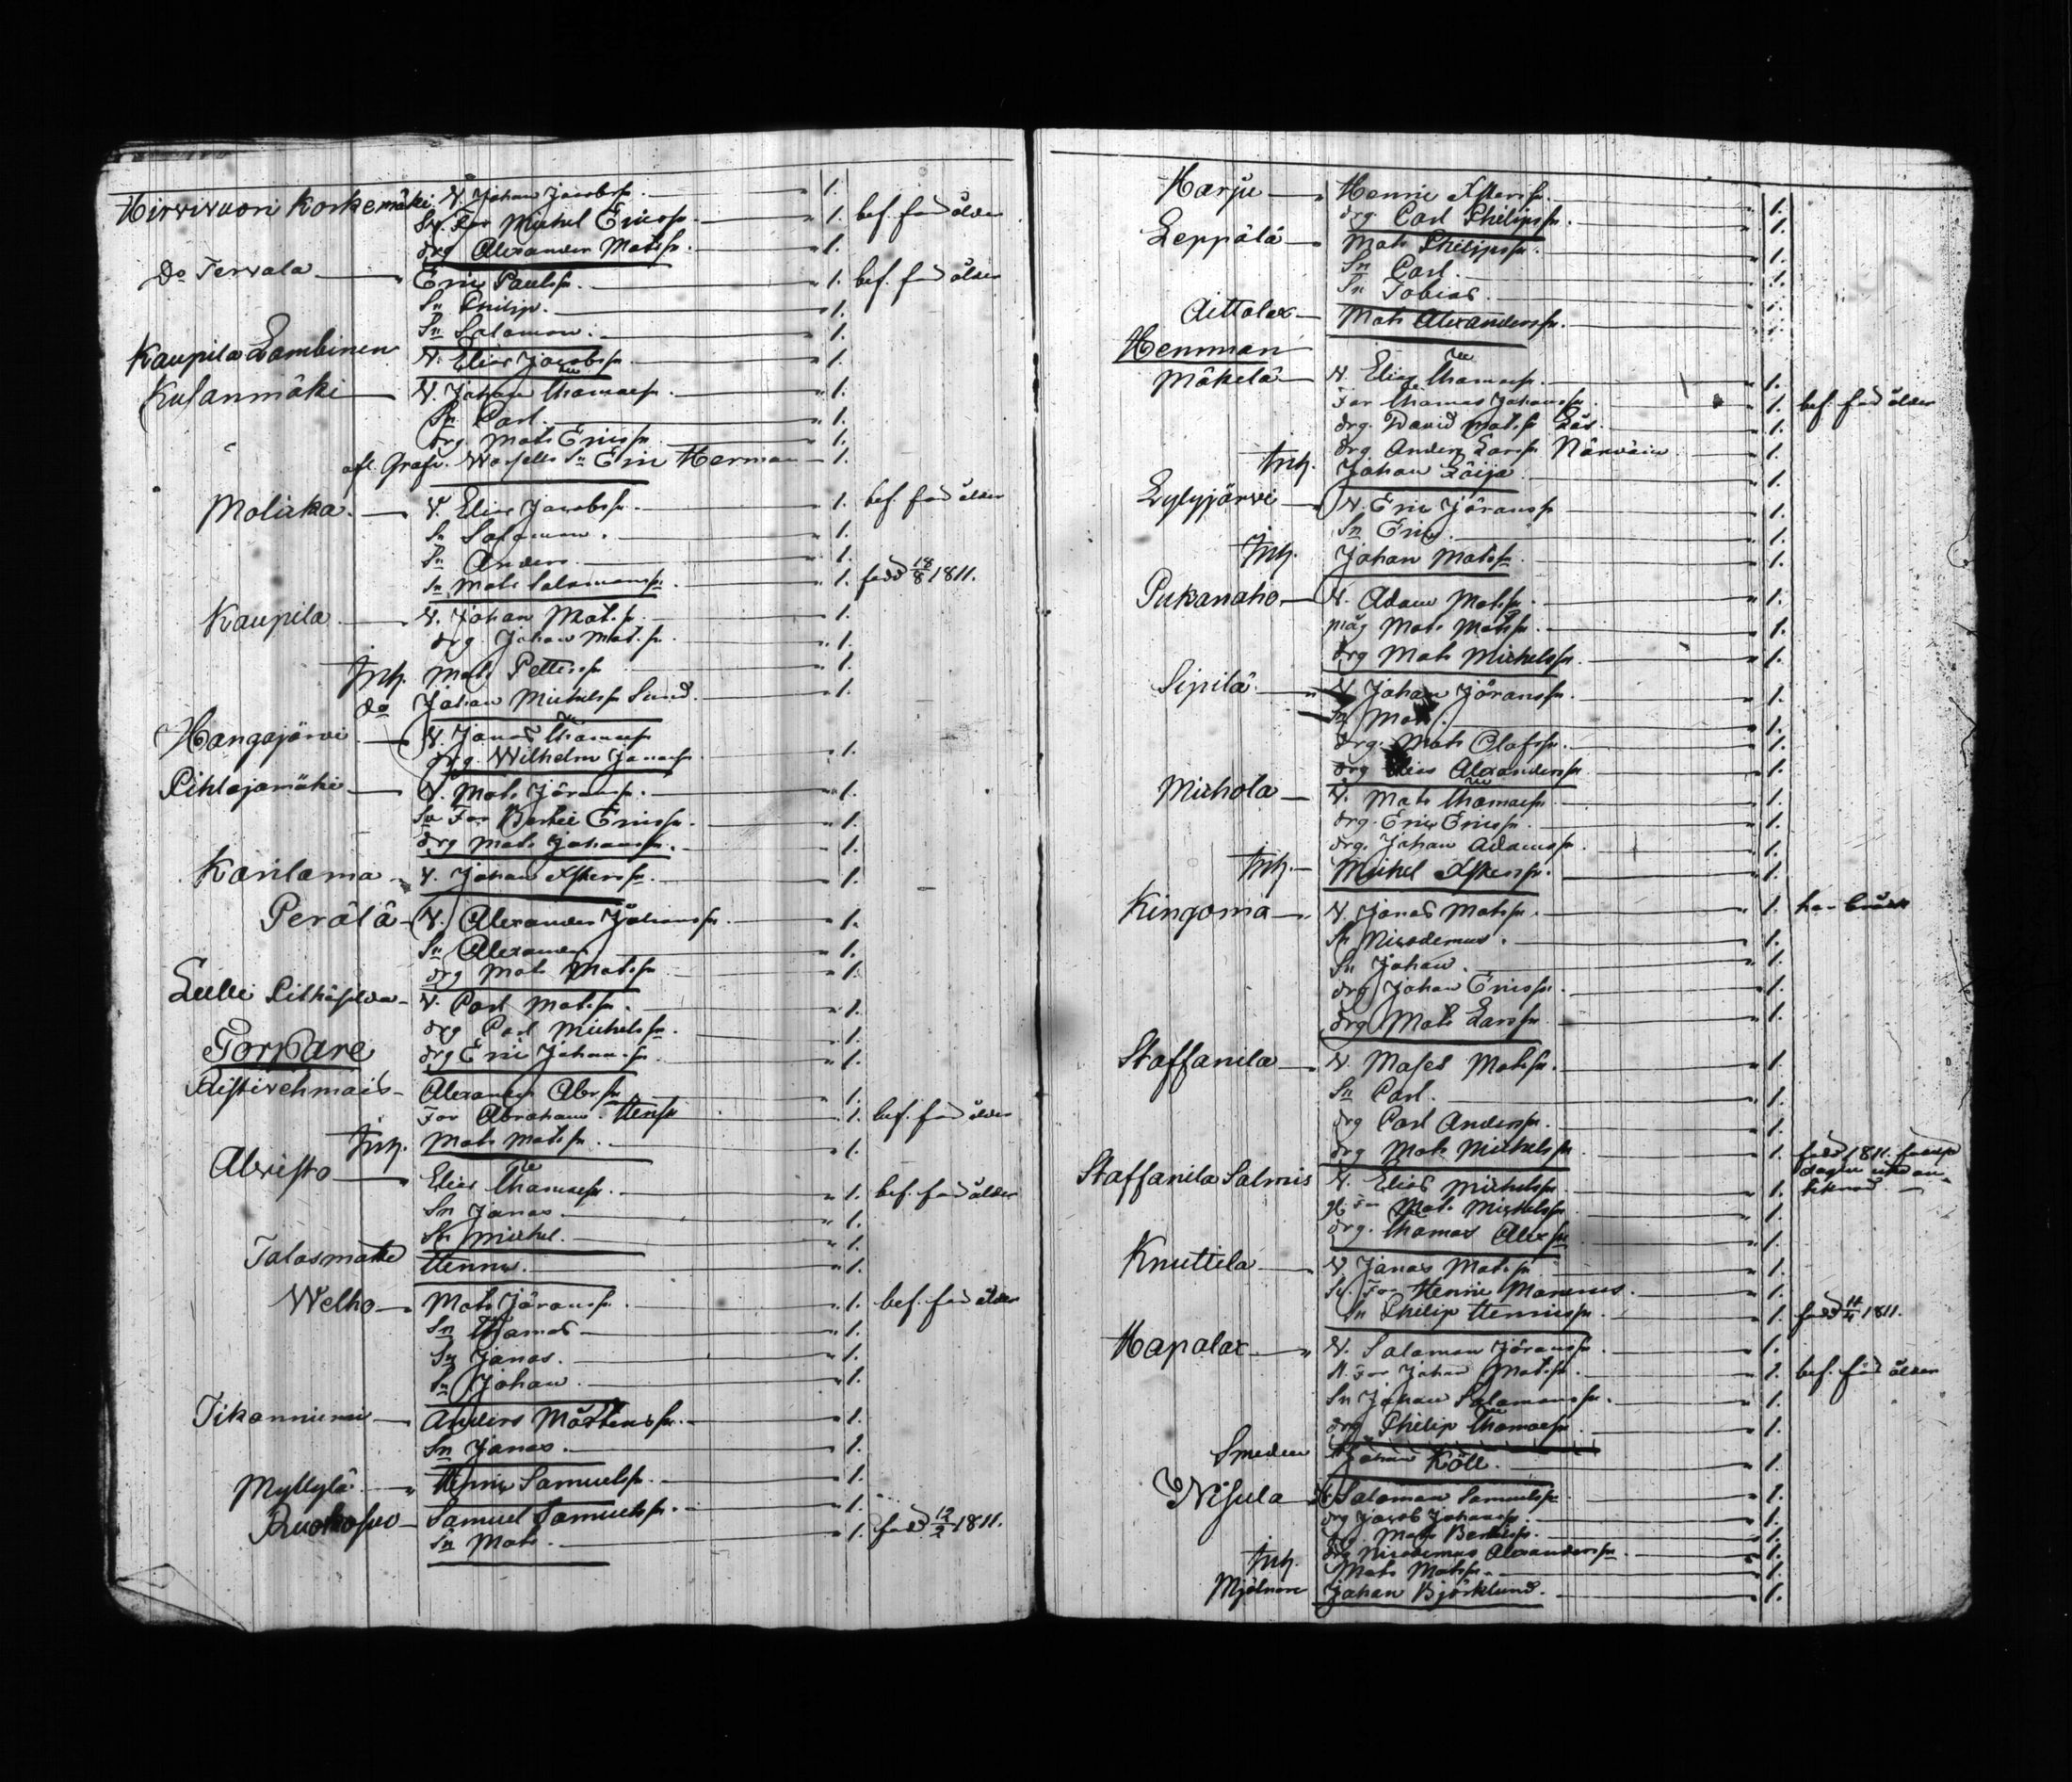 Hirvivuori Korkemäki V. Johan Jacobss. 1.
Sv. Far Michel Ericss. 1. bef. för ålder
drg Alexander Matss. 1.
Do Tervala Eric Paulss. 1. bef. för ålder
Sn Philip. 1.
Sn Salomon. 1.
Kaupila Lambinen V. Elias Jacobss. 1.
Kusanmäki V. Johan Thomass. 1.
Sn Carl. 1.
drg. Mats Ericss. 1.
afl. Graf. Sn Eric Herman 1.
Moliaka V. Elias Jacobss. 1. bef. för ålder
Sn Salomon. 1.
Sn Anders 1.
Sn Mats Salomonss. 1. född 18/8 1811.
Kaupila V. Johan Mats.s. 1.
drg Johan Mats.s. 1.
Inh. Mats Petterss. 1.
do Johan Michelss. Sund. 1.
Hangajärvi V. Jonas Thomass
drg. Wilhelm Jonass. 1.
Pihlajamäki V. Mats Jöranss. 1.
Sv. Far Bertil Ericss. 1.
drg Mats Johanss. 1.
Karilama V. Johan Afterss. 1.
Perälä V. Alexander Johanss. 1.
Sn Alexander 1.
drg Mats Matss. 1.
Lulli Pitkäselkä V. Carl Matss. 1.
drg Carl Michelss. 1.
Torpare drg Eric Johans.s. 1.
Ristivehmais Alexander Abr.s. 1.
Far Abraham Henss. 1. bef. för ålder
Inh. Mats Matss. 1.
Alvisto Elias Thomass. 1. bef. för ålder
Sn Jonas. 1.
Sn Michel. 1.
Talasmatte Henric. 1.
Welho Mats Jöranss. 1. bef. för ålder
Sn Thomas 1.
Sn Jonas. 1.
Sn Johan. 1.
Tikanniemi Anders Mårtenss. 1.
Sn Jonas. 1.
Myllylä Henric Samuelss. 1.
Ruokosuo Samuel Samuelss. 1.
Sn Mats. 1. född 12/2 1811.
Harju Henric Afterss. 1.
drg. Carl Philipss. 1.
Leppälä Mats Philipss. 1.
Sn Carl. 1.
Sn Tobias. 1.
Aittola Mats Alexanderss. 1.
Hemman
Mäkelä V. Elias Thomass. 1.
Far Thomas Johanss. 1. bef. för ålder
drg. David Mats.s 1.
drg. Anders Larss Närväin 1.
Inh. Johan Läijä 1.
Lylyjärvi V. Eric Jöranss 1.
Sn Eric. 1.
Inh. Johan Matss. 1.
Pukanaho V. Adam Matss. 1.
måg Mats Matss. 1.
drg Mats Michelss. 1.
Sipilä V. Johan Jöranss. 1.
Sn Mats. 1.
drg. Mats Olofss. 1.
drg Elias Alexanderss. 1.
Michola V. Mats Thomass. 1.
drg. Eric Ericss. 1.
drg. Johan Adamss. 1.
Inh. Michel Afterss. 1.
Kingoma V. Jonas Matss. 1. har bråck
Sn Nicodemus. 1.
Sn Johan. 1.
drg Johan Ericss. 1.
drg Mats Larss. 1.
Staffanila V. Moses Matss. 1.
Sn Carl. 1.
drg Carl Anderss. 1.
drg Mats Michelss. 1. född 1811.
Staffanila Salmis V. Elias Michelss. 1. tiknad.
Mats Michelss. 1.
drg. Thomas Alexss. 1.
Knuttila V. Jonas Mats.s. 1.
Sv. Far Henric Manus.
Sn Philip Henricss. 1. född 11/4 1811.
Hapala V. Salomon Jöranss. 1.
Far Johan Mats.s. 1. bef. för ålder
Sn Johan Salomonss. 1.
drg Philip Thomass. 1.
Smeden Johan Köll. 1.
Nisula V. Salomon Samuelss. 1.
drg Jacob Johanss. 1.
drg. Mats Bertilss. 1.
drg Nicodemus Alexanderss. 1.
Inh. Mats Matss. 1.
Mjölnare Johan Björklund. 1.